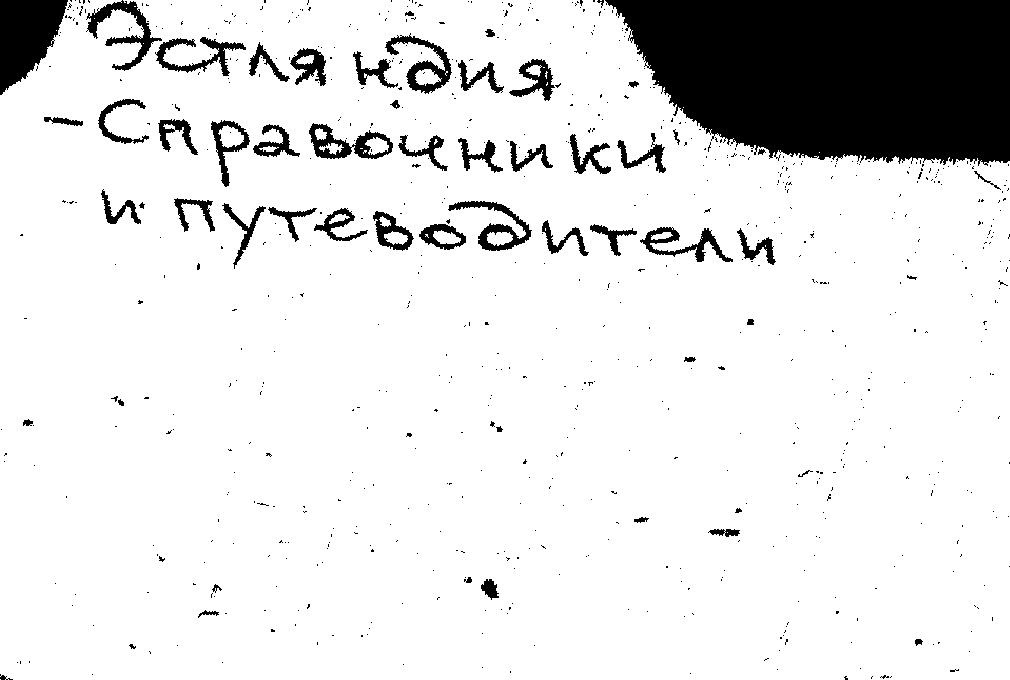 Эстляндия
- Справочники
и путеводители